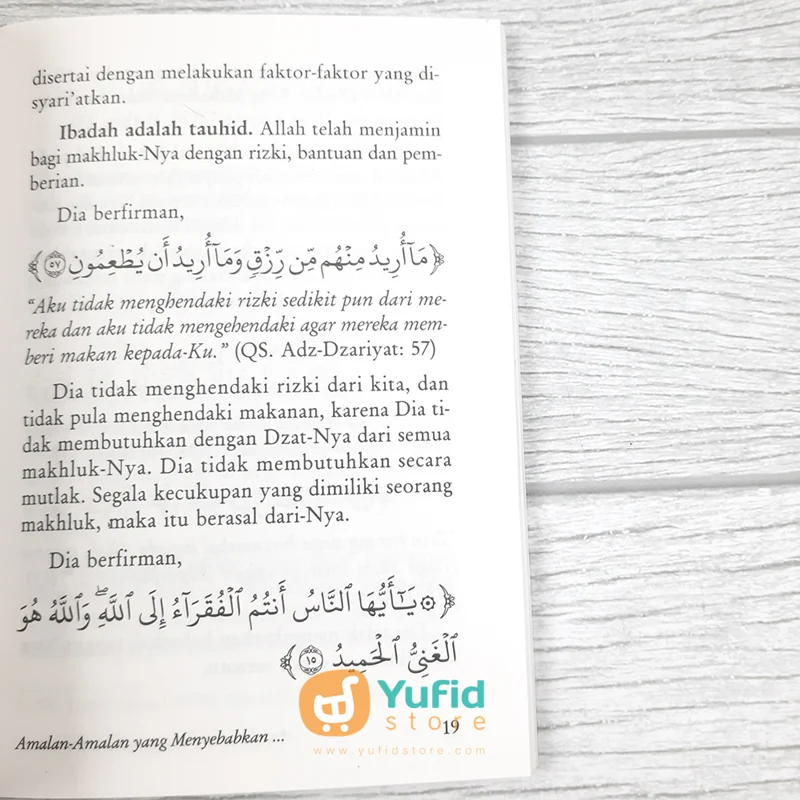 disertai dengan melakukan faktor-faktor yang di-
syari'atkan.
Ibadah adalah tauhid. Allah telah menjamin
bagi makhluk-Nya dengan rizki, bantuan dan pem-
berian.
Dia berfirman,
﴿مَآ أُرِيدُ مِنْهُم مِّن رِّزْقٍ وَمَآ أُرِيدُ أَن يُطْعِمُونِ ٥٧﴾
"Aku tidak menghendaki rizki sedikit pun dari me-
reka dan aku tidak mengehendaki agar mereka mem-
beri makan kepada-Ku." (QS. Adz-Dzariyat: 57)
Dia tidak menghendaki rizki dari kita, dan
tidak pula menghendaki makanan, karena Dia ti-
dak membutuhkan dengan Dzat-Nya dari semua
makhluk-Nya. Dia tidak membutuhkan secara
mutlak. Segala kecukupan yang dimiliki seorang
makhluk, maka itu berasal dari-Nya.
Dia berfirman,
﴿۞ يَـٰٓأَيُّهَا ٱلنَّاسُ أَنتُمُ ٱلْفُقَرَآءُ إِلَى ٱللَّهِ ۖ وَٱللَّهُ هُوَ
ٱلْغَنِىُّ ٱلْحَمِيدُ ١٥﴾
Yufid
store
www.yufidstore.com
19
Amalan-Amalan yang Menyebabkan ...